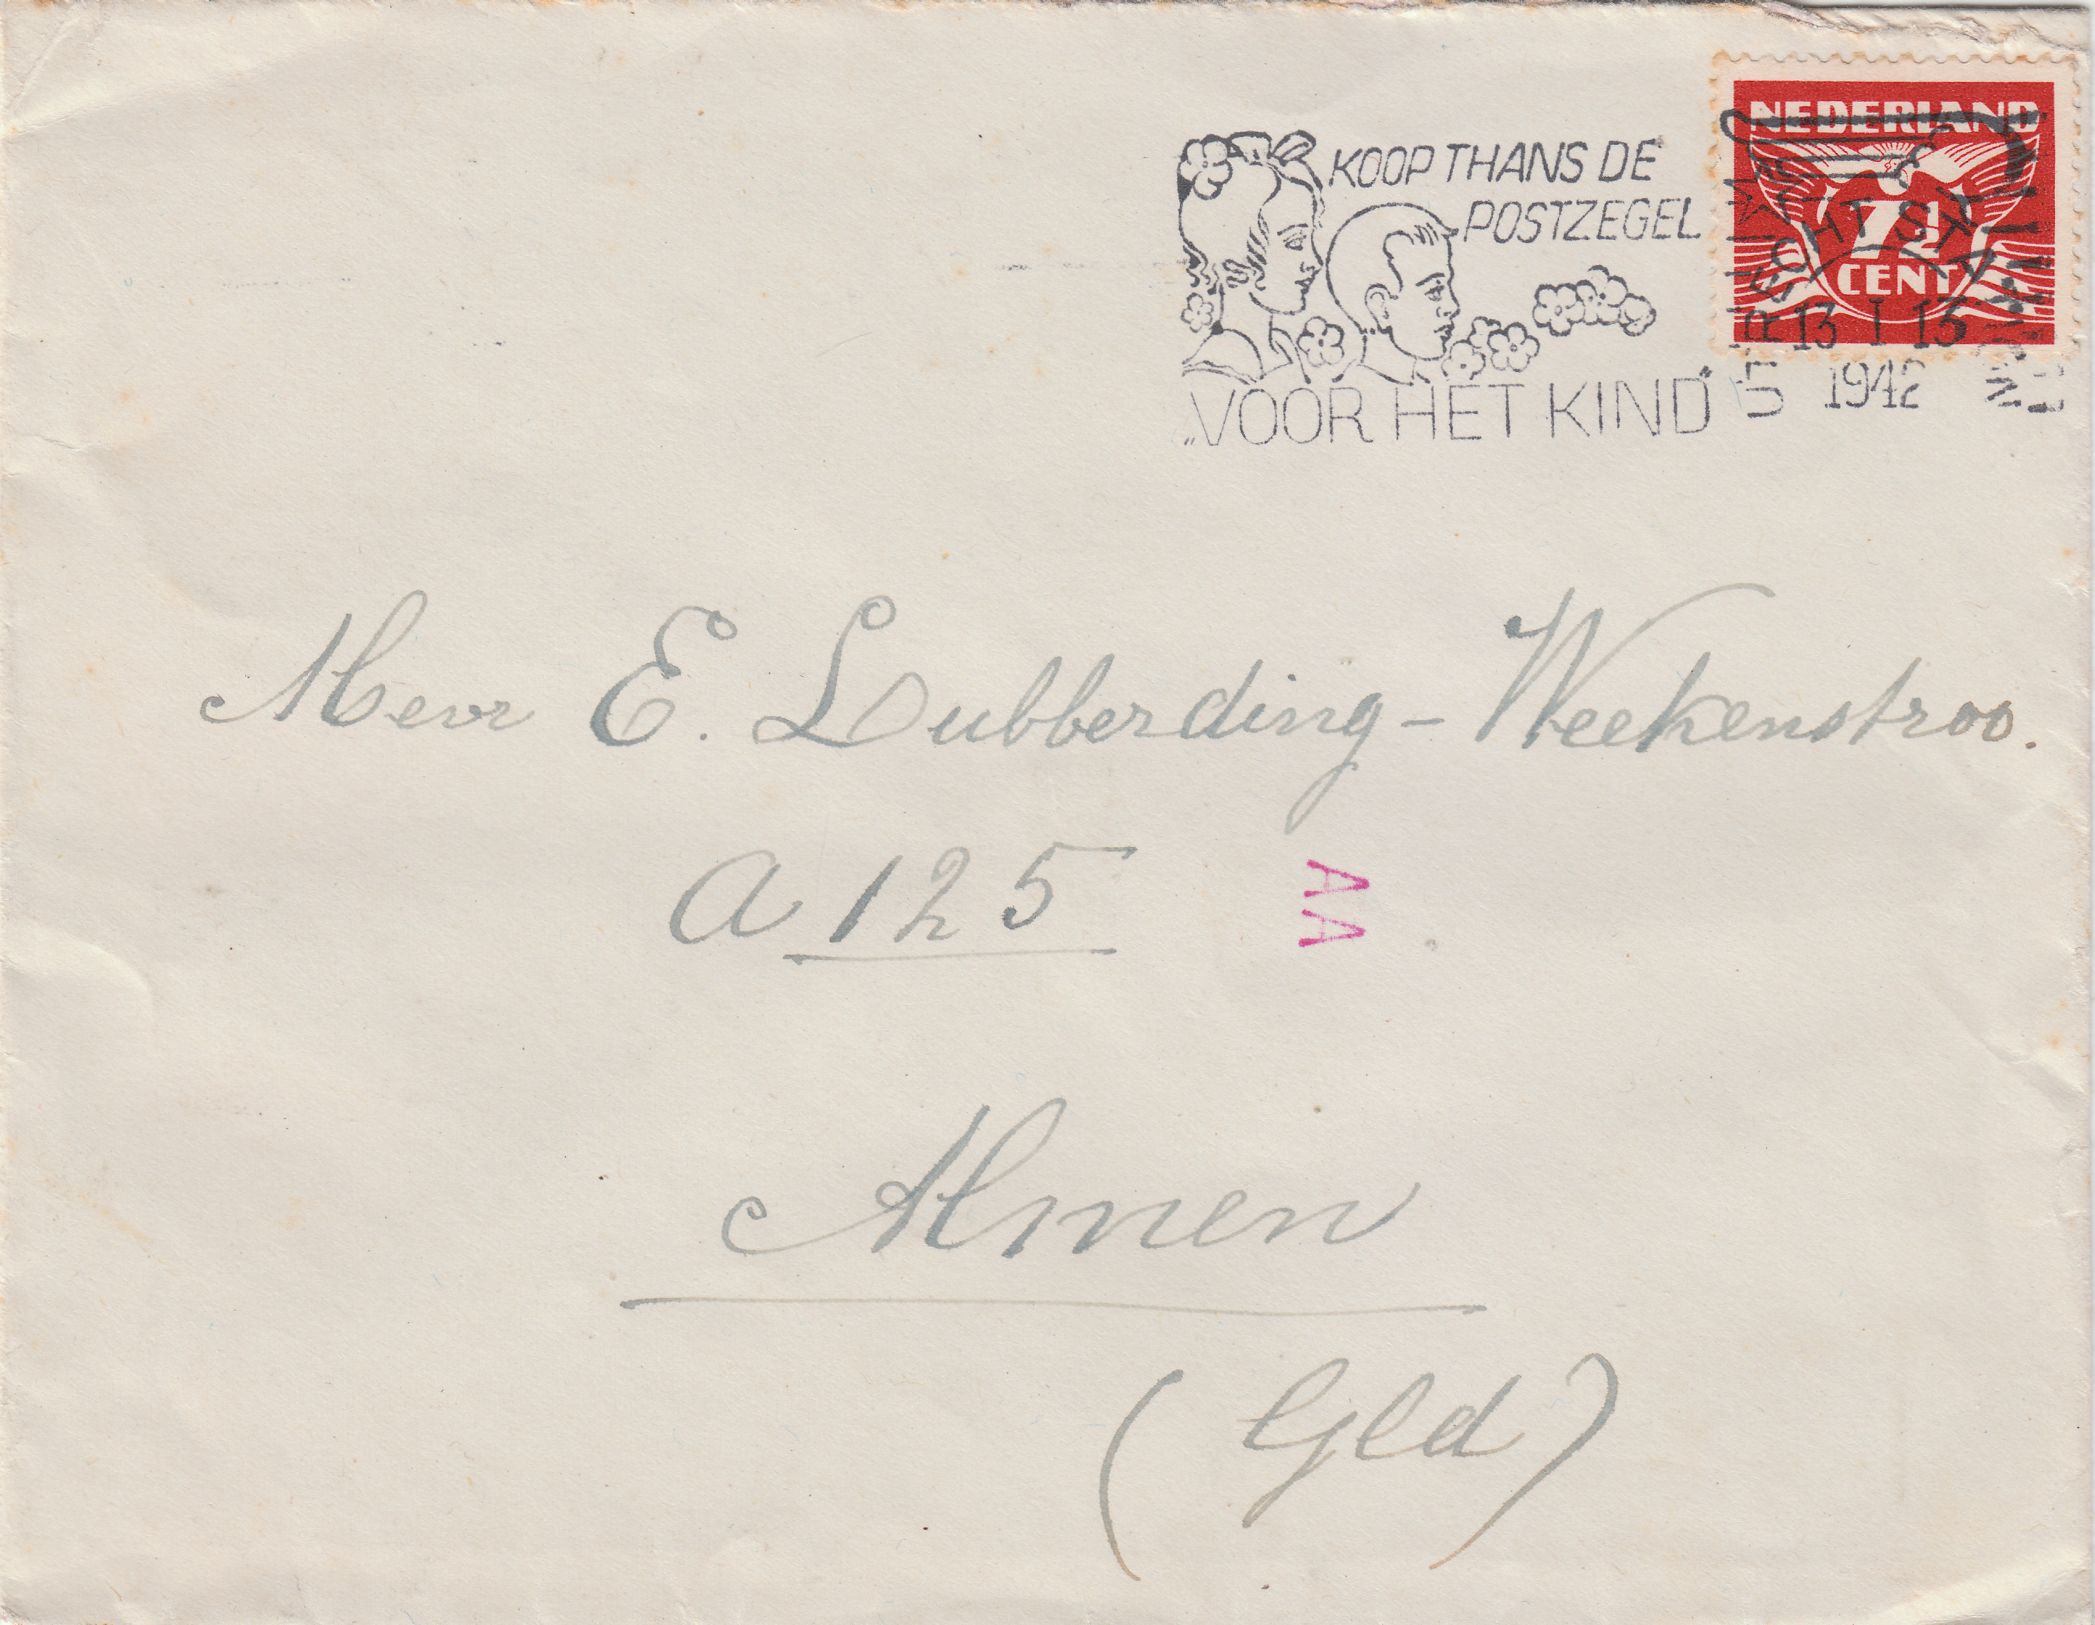 NEDERLAND
7½
CENT
KOOP THANS DE
POSTZEGEL
„VOOR HET KIND"
UTRECHT STATION
13 I 13
1942
Mevr E. Lubberding - Weekenstroo.
A 125
AA
Almen
(Gld)